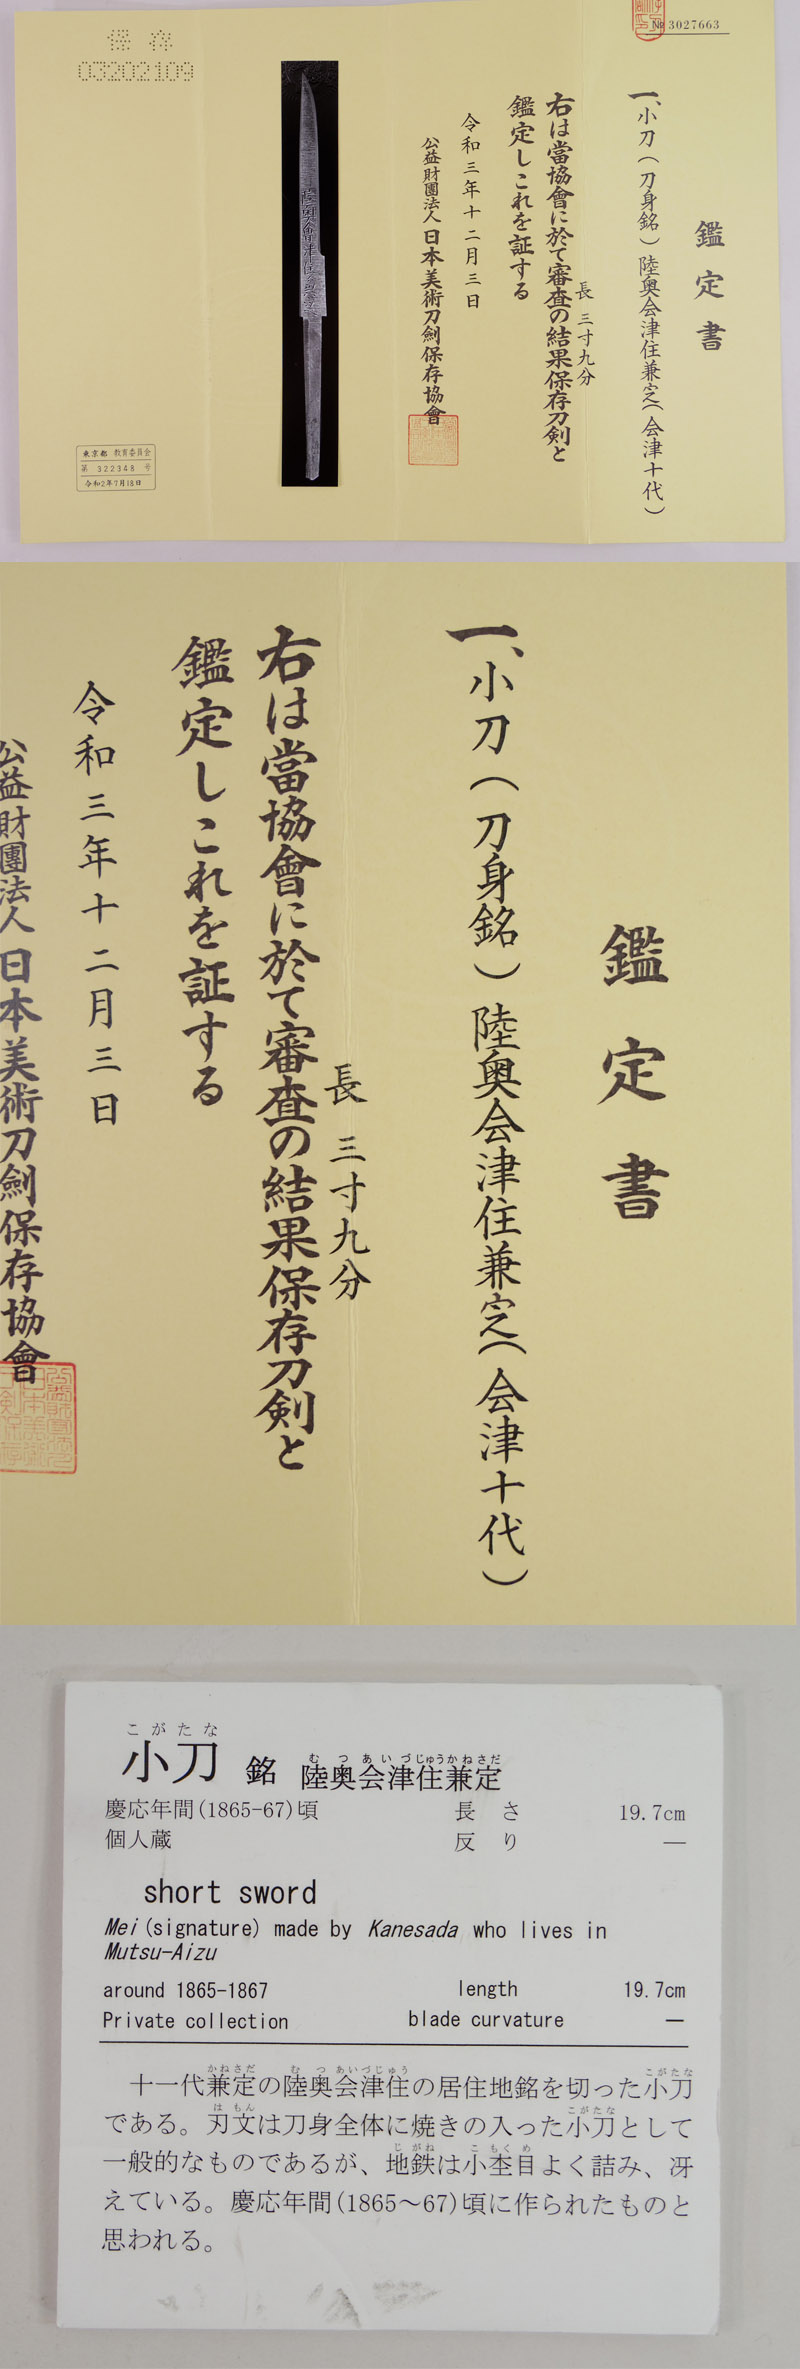 保存
03202109
№ 3027663
鑑定書
一、小刀(刀身銘)陸奥会津住兼㝎(会津十代)
長 三寸九分
右は當協會に於て審査の結果保存刀剣と
鑑定しこれを証する
令和三年十二月三日
公益財團法人日本美術刀劍保存協會
陸奥会津住
東京都 教育委員会
第 322348 号
令和2年7月18日
鑑定書
一、小刀(刀身銘)陸奥会津住兼㝎(会津十代)
長 三寸九分
右は當協會に於て審査の結果保存刀剣と
鑑定しこれを証する
令和三年十二月三日
公益財團法人日本美術刀劍保存協會
こがたな むつあいづじゅうかねさだ
小刀 銘 陸奥会津住兼定
慶応年間(1865-67)頃 長さ 19.7cm
個人蔵 反り —
short sword
Mei(signature) made by Kanesada who lives in
Mutsu-Aizu
around 1865-1867 length 19.7cm
Private collection blade curvature —
かねさだ むつあいづじゅう こがたな
十一代兼定の陸奥会津住の居住地銘を切った小刀
はもん こがたな
である。刃文は刀身全体に焼きの入った小刀として
じがね こもくめ
一般的なものであるが、地鉄は小杢目よく詰み、冴
えている。慶応年間(1865～67)頃に作られたものと
思われる。